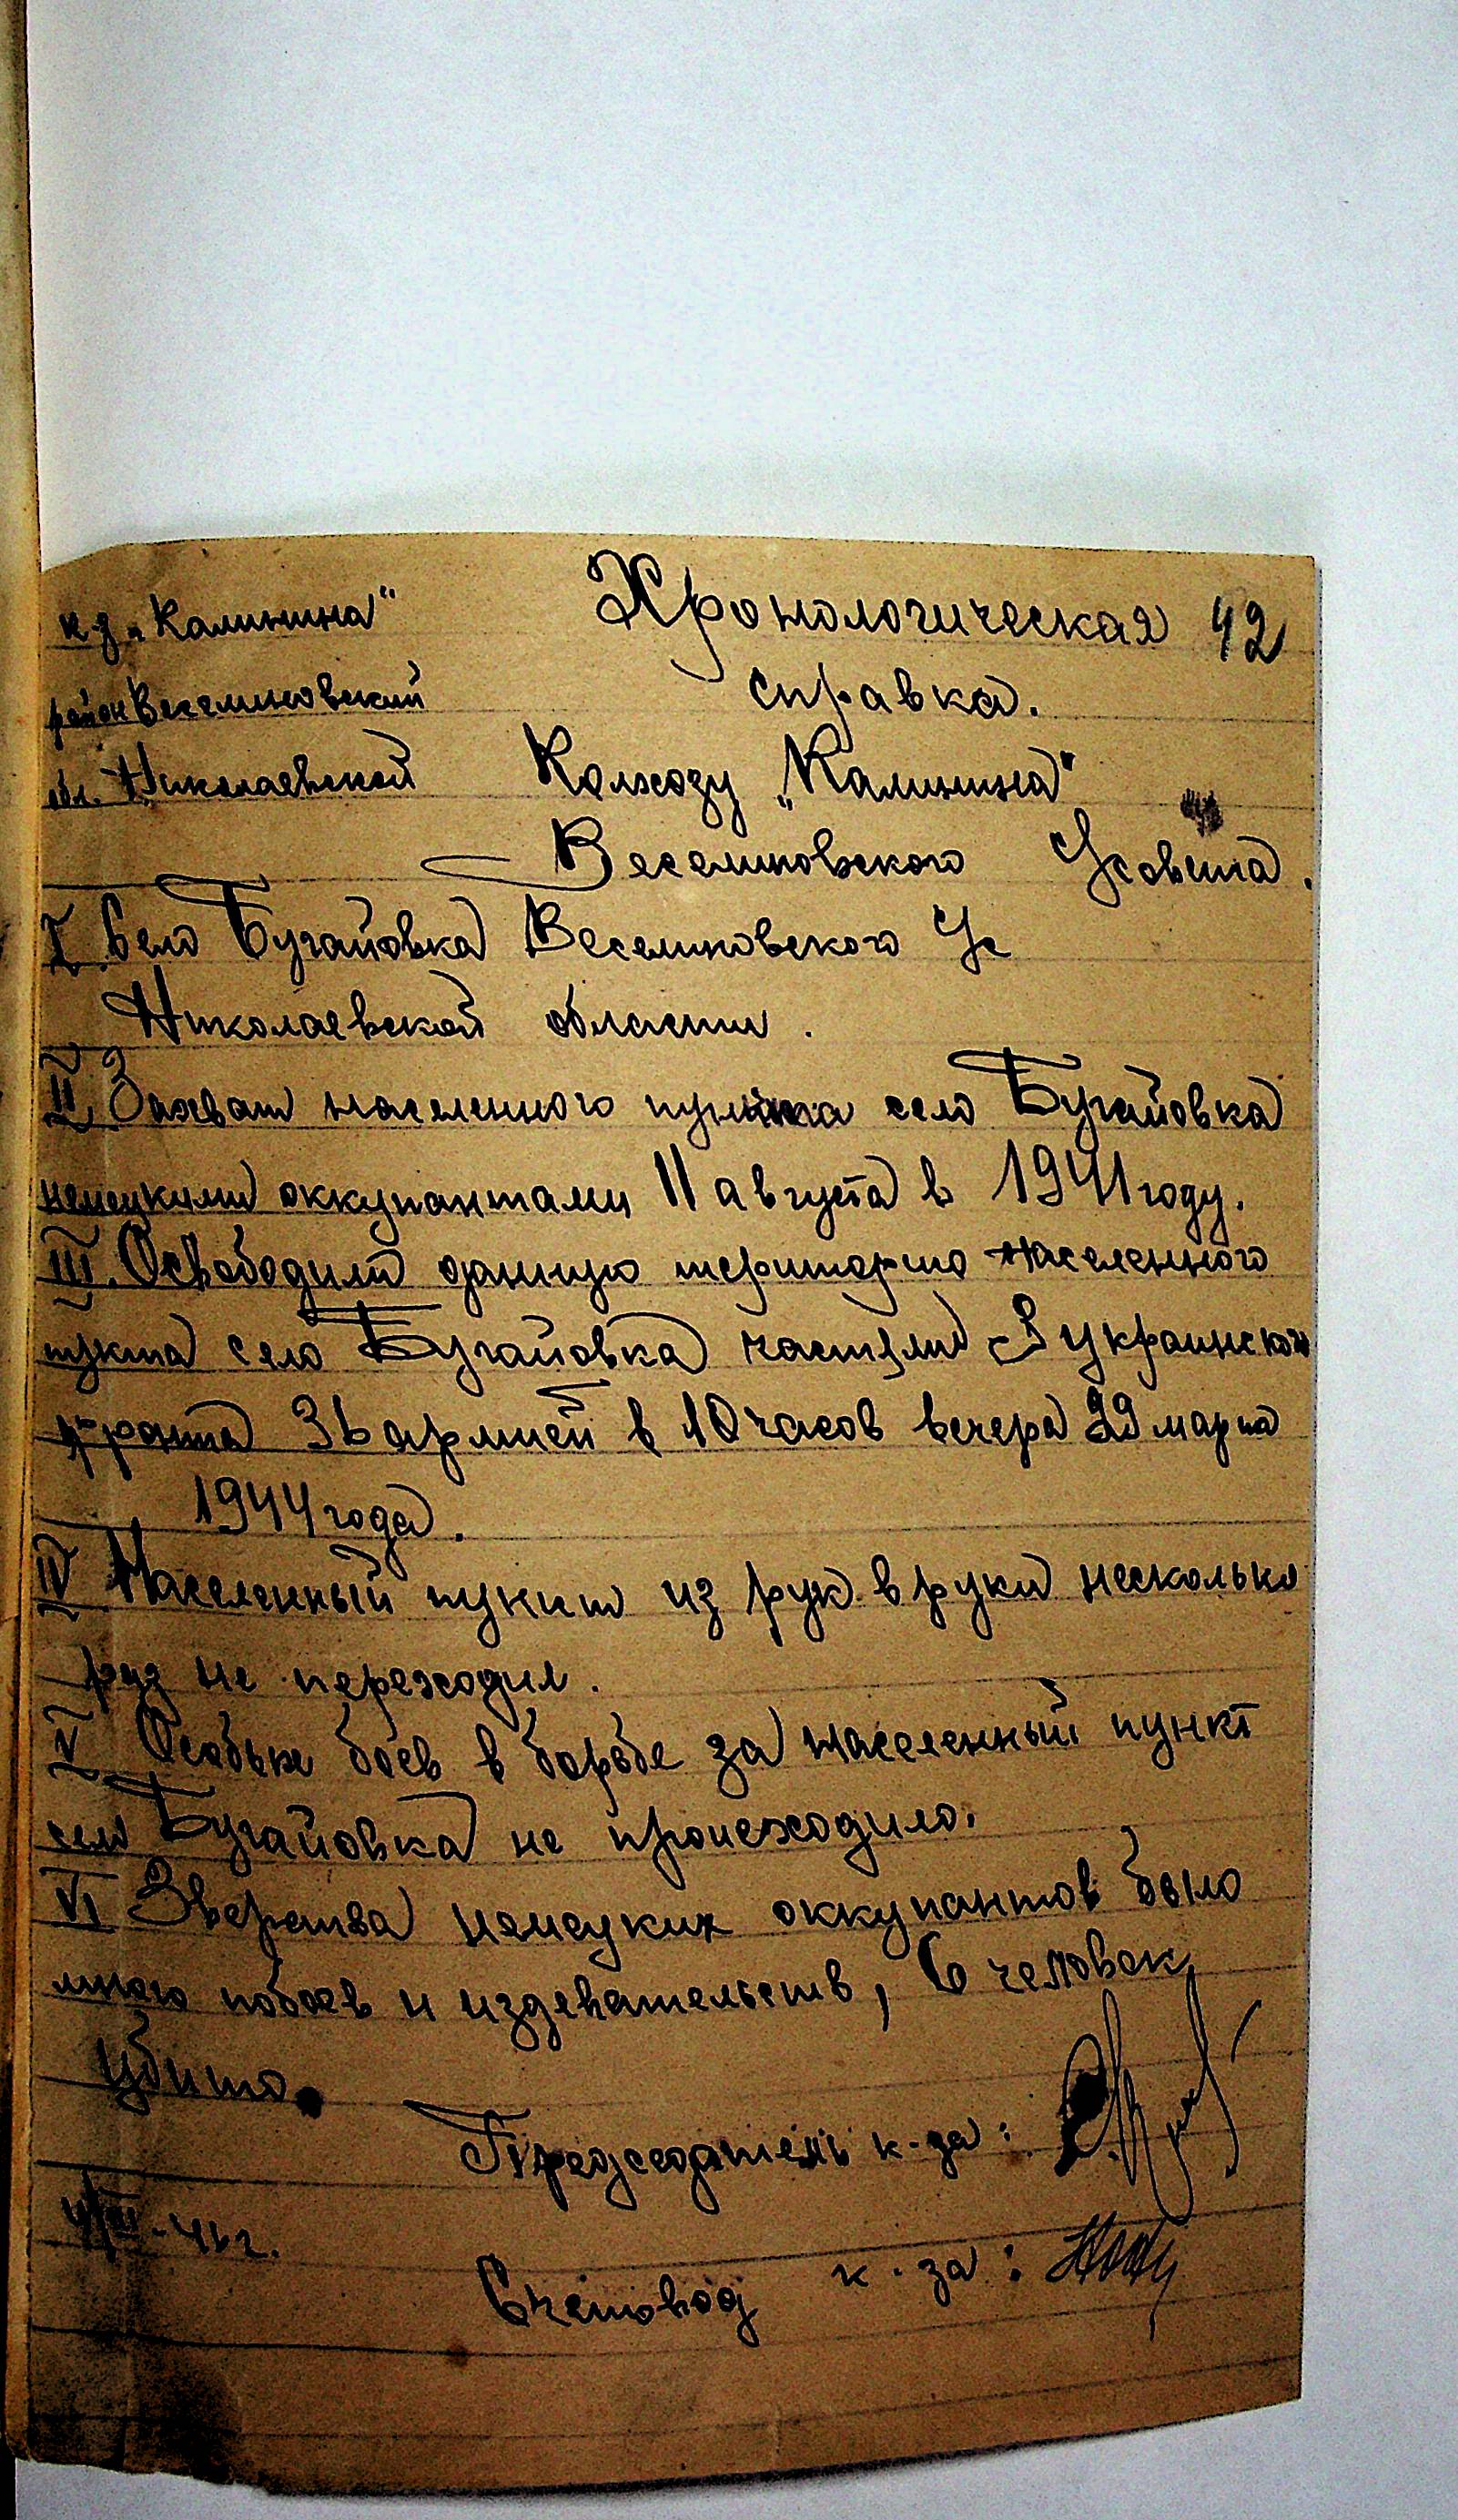 к-з „Калинина"
Хронологическая 42
район Веселиновский
справка.
обл. Николаевской
Колхозу „Калинина"
Веселиновского У/совета.
I. Село Бугайовка Веселиновского У/с
Николаевской области.
II Захват населенного пункта село Бугайовка
немецкими оккупантами 11 августа в 1941 году.
III. Освободили данную територию населенного
пункта село Бугайовка частями 3 украинского
фронта 3ь армией в 10 часов вечера 29 марта
1944 года.
IV Населенный пункт из рук в руки несколько
раз не переходил.
V Особых боев в борьбе за населенный пункт
село Бугайовка не происходило.
VI Зверства немецких оккупантов было
много побоев и издевательств, 6 человек
убито.
Председатель к-за:
Счетовод к-за: